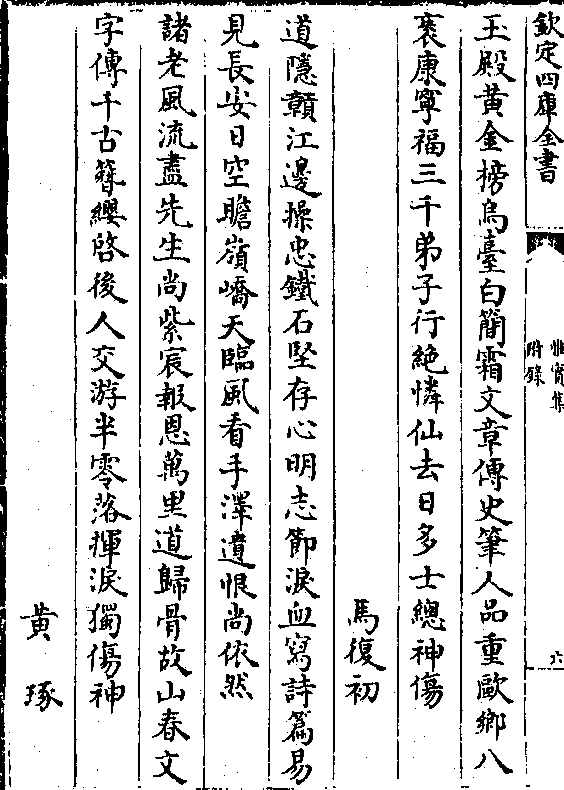 欽定四庫全書
惟實集
附錄
六
玉殿黃金榜烏臺白簡霜文章傳史筆人品重歐鄉八
袠康寧福三千弟子行絶憐仙去日多士總神傷
馬復初
道隱贛江邊操忠鐵石堅存心明志節淚血寫詩篇易
見長安日空瞻嶺嶠天臨風看手澤遺恨尚依然
諸老風流盡先生尚紫宸報恩萬里道歸骨故山春文
字傳千古簮纓啓後人交游半零落揮淚獨傷神
黄琢